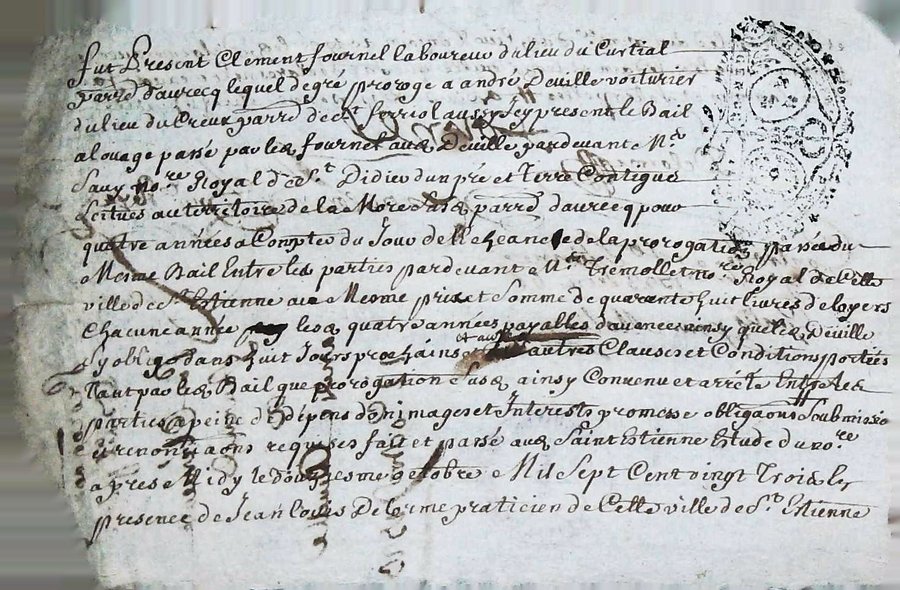 fut Present Clement fournel laboureur du lieu du Curtial
parre d'aurecq lequel de gré proroge a andré Deville voiturier
du lieu du Creux parre de ct ferriol aussy Icy present le Bail
a louage passé par led fournel aud Deville pardevant Me
Sauy nore Royal de ct Didier d'un pré et Terre Contigue
scitués au territoire de la More susd parre d'aurecq pour
quatre années a Compter du Jour de l'echeance de la prorogation passée du
Mesme Bail Entre les parties pardevant Me Tremollet nore Royal de Cette
ville de ct Estienne au Mesme prix et Somme de quarante huit livres de loyers
Chacune année lesd quatre années payables d'avance ainsy que led Deville
s'y oblige dans huit Jours prochains et aux autres Clauses et Conditions portées
Tant par led Bail que prorogation susd ainsy Convenu et arrêté Entre les
parties a peine de dépens domimages et Interests promesse obligaons Soubmission
et renontiaons requises fait et passé aud Saint Estienne Etude du nore
apres Midy le douziesme octobre Mil Sept Cent vingt Trois
presence de Jean Louis Delorme praticien de Cette ville de St Estienne